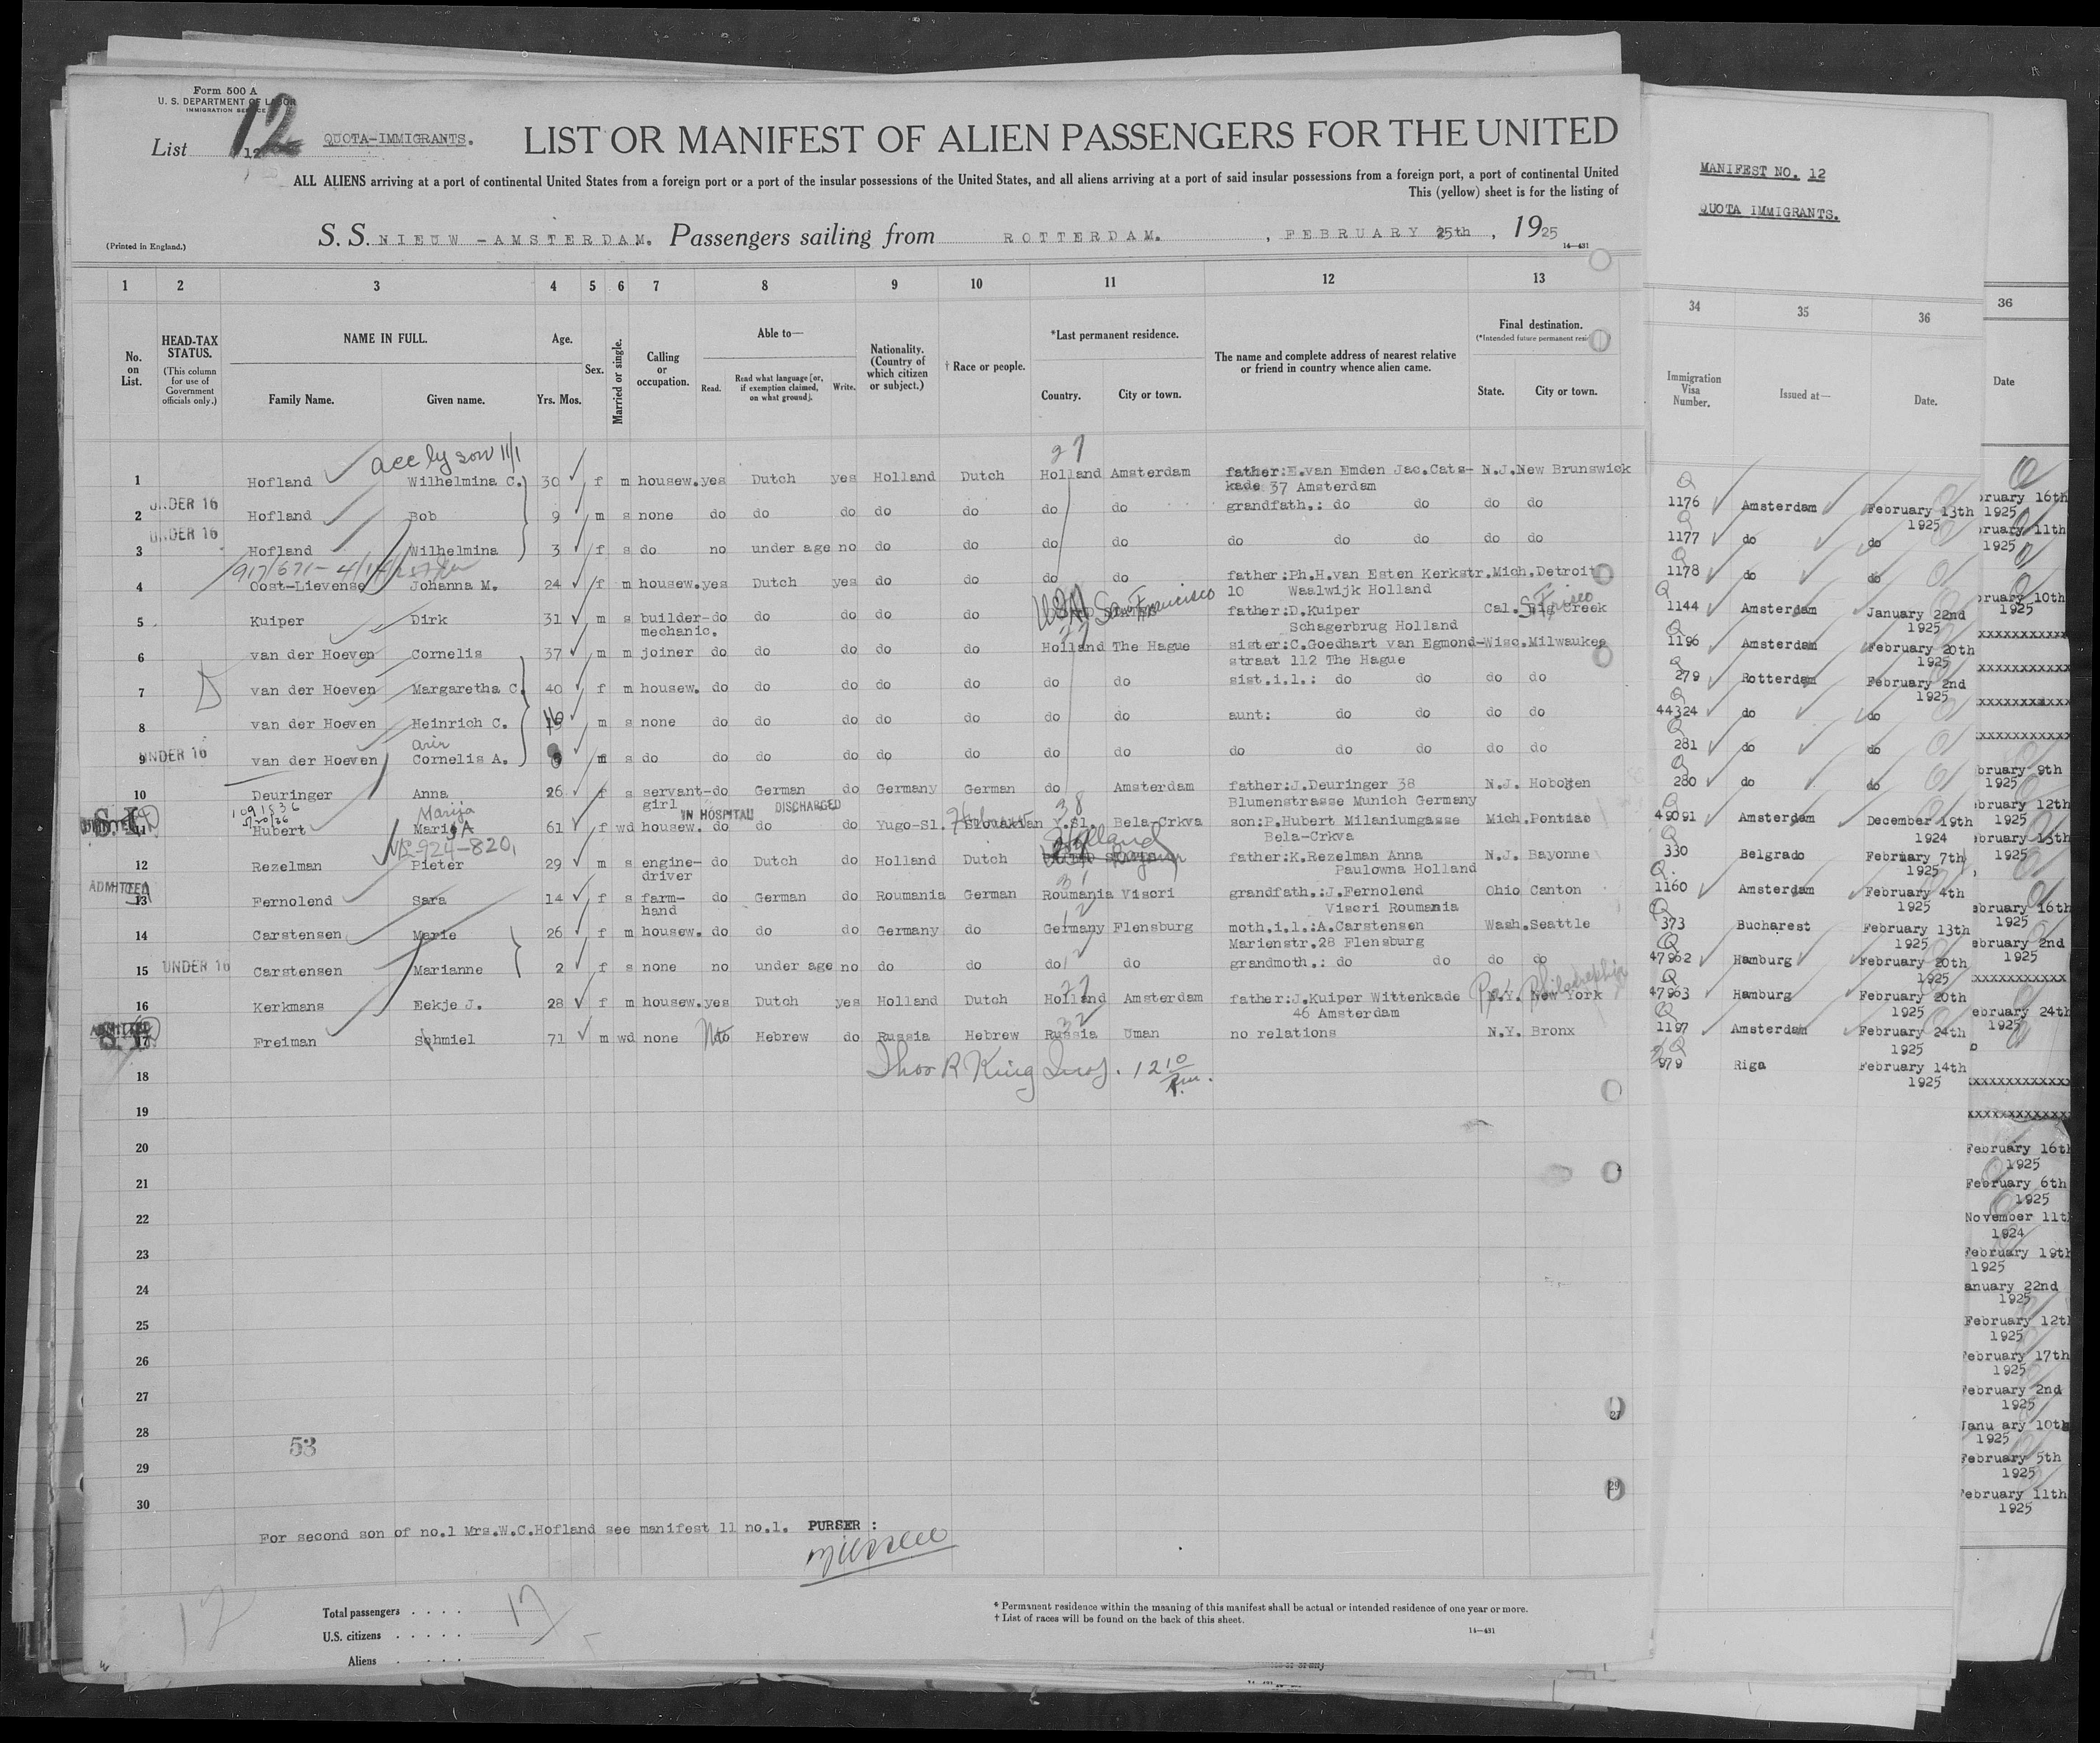 Form 500 A
U. S. DEPARTMENT OF LABOR
IMMIGRATION SERVICE
List 12 QUOTA-IMMIGRANTS. LIST OR MANIFEST OF ALIEN PASSENGERS FOR THE UNITED
ALL ALIENS arriving at a port of continental United States from a foreign port or a port of the insular possessions of the United States, and all aliens arriving at a port of said insular possessions from a foreign port, a port of continental United
This (yellow) sheet is for the listing of
(Printed in England.) S. S. NIEUW-AMSTERDAM. Passengers sailing from ROTTERDAM. , FEBRUARY 25th , 1925
14—431
1 2 3 4 5 6 7 8 9 10 11 12 13
No. on List.
HEAD-TAX STATUS. (This column for use of Government officials only.)
NAME IN FULL. Family Name. Given name.
Age. Yrs. Mos.
Sex.
Married or single.
Calling or occupation.
Able to— Read. Read what language [or, if exemption claimed, on what ground]. Write.
Nationality. (Country of which citizen or subject.)
† Race or people.
*Last permanent residence. Country. City or town.
The name and complete address of nearest relative or friend in country whence alien came.
Final destination. State. City or town.
27
1 Hofland Wilhelmina C. 30 f m housew. yes Dutch yes Holland Dutch Holland Amsterdam father:E.van Emden Jac.Cats- N.J. New Brunswick
kade 37 Amsterdam
2 UNDER 16 Hofland Bob 9 m s none do do do do do do do grandfath.: do do do do
3 UNDER 16 Hofland Wilhelmina 3 f s do no under age no do do do do do do do do do
4 Oost-Lievense Johanna M. 24 f m housew. yes Dutch yes do do do do father:Ph.H.van Esten Kerkstr. Mich. Detroit
10 Waalwijk Holland
5 Kuiper Dirk 31 m s builder- do do do do do San Francisco father:D.Kuiper Cal. Big Creek
mechanic. Schagerbrug Holland
6 van der Hoeven Cornelis 37 m m joiner do do do do do Holland The Hague sister:C.Goedhart van Egmond- Wisc. Milwaukee
straat 112 The Hague
7 van der Hoeven Margaretha C. 40 f m housew. do do do do do do do sist.i.l.: do do do do
8 van der Hoeven Heinrich C. 16 m s none do do do do do do do aunt: do do do do
9 UNDER 16 van der Hoeven Cornelis A. m s do do do do do do do do do do do do do
10 Deuringer Anna 26 f s servant- do German do Germany German do Amsterdam father:J.Deuringer 38 N.J. Hoboken
girl Blumenstrasse Munich Germany
IN HOSPITAL DISCHARGED
S.I. 11 Hubert Marija 61 f wd housew. do do do Yugo-Sl. Slovakian Y.Sl. Bela-Crkva son:P.Hubert Milaniumgasse Mich. Pontiac
Bela-Crkva
12 Rezelman Pieter 29 m s engine- do Dutch do Holland Dutch Holland father:K.Rezelman Anna N.J. Bayonne
driver Paulowna Holland
ADMITTED
13 Fernolend Sara 14 f s farm- do German do Roumania German Roumania Visori grandfath.:J.Fernolend Ohio Canton
hand Viscri Roumania
14 Carstensen Marie 26 f m housew. do do do Germany do Germany Flensburg moth.i.l.:A.Carstensen Wash. Seattle
Marienstr.28 Flensburg
15 UNDER 16 Carstensen Marianne 2 f s none no under age no do do do do grandmoth.: do do do do
16 Kerkmans Eekje J. 28 f m housew. yes Dutch yes Holland Dutch Holland Amsterdam father:J.Kuiper Wittenkade N.Y. New York
Philadelphia
46 Amsterdam
ADMITTED S.I.
17 Freiman Schmiel 71 m wd none No Hebrew do Russia Hebrew Russia Uman no relations N.Y. Bronx
18
19
20
21
22
23
24
25
26
27
28
29
30
53
For second son of no.1 Mrs.W.C.Hofland see manifest 11 no.1. PURSER :
Total passengers . . . . 17
U.S. citizens . . . . .
Aliens . . . . .
* Permanent residence within the meaning of this manifest shall be actual or intended residence of one year or more.
† List of races will be found on the back of this sheet.
14—431
MANIFEST NO. 12
QUOTA IMMIGRANTS.
34 35 36
Immigration Visa Number. Issued at— Date.
1176 Amsterdam February 13th
1925
1177 do do
1178 do do
1144 Amsterdam January 22nd
1925
1196 Amsterdam February 20th
1925
279 Rotterdam February 2nd
1925
44324 do do
281 do do
280 do do
49091 Amsterdam December 19th
1924
330 Belgrado February 7th
1925
1160 Amsterdam February 4th
1925
373 Bucharest February 13th
1925
47962 Hamburg February 20th
1925
47963 Hamburg February 20th
1925
1197 Amsterdam February 24th
1925
979 Riga February 14th
1925
36
Date
February 16th
1925
February 6th
1925
November 11th
1924
February 19th
1925
anuary 22nd
1925
February 12th
1925
February 17th
1925
February 2nd
1925
Janu ary 10th
1925
February 5th
1925
February 11th
1925